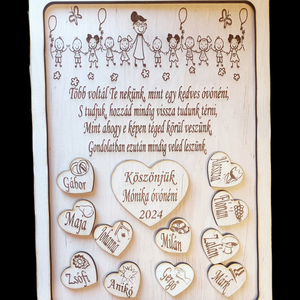 Több voltál Te nekünk, mint egy kedves óvónéni,
S tudjuk, hozzád mindig vissza tudunk térni,
Mint ahogy e képen téged körül veszünk,
Gondolatban ezután mindig veled leszünk.
Köszönjük
Mónika óvónéni
2024
Gábor
Maja
Jolanna
Zsófi
Anikó
Milán
Gergő
Márk